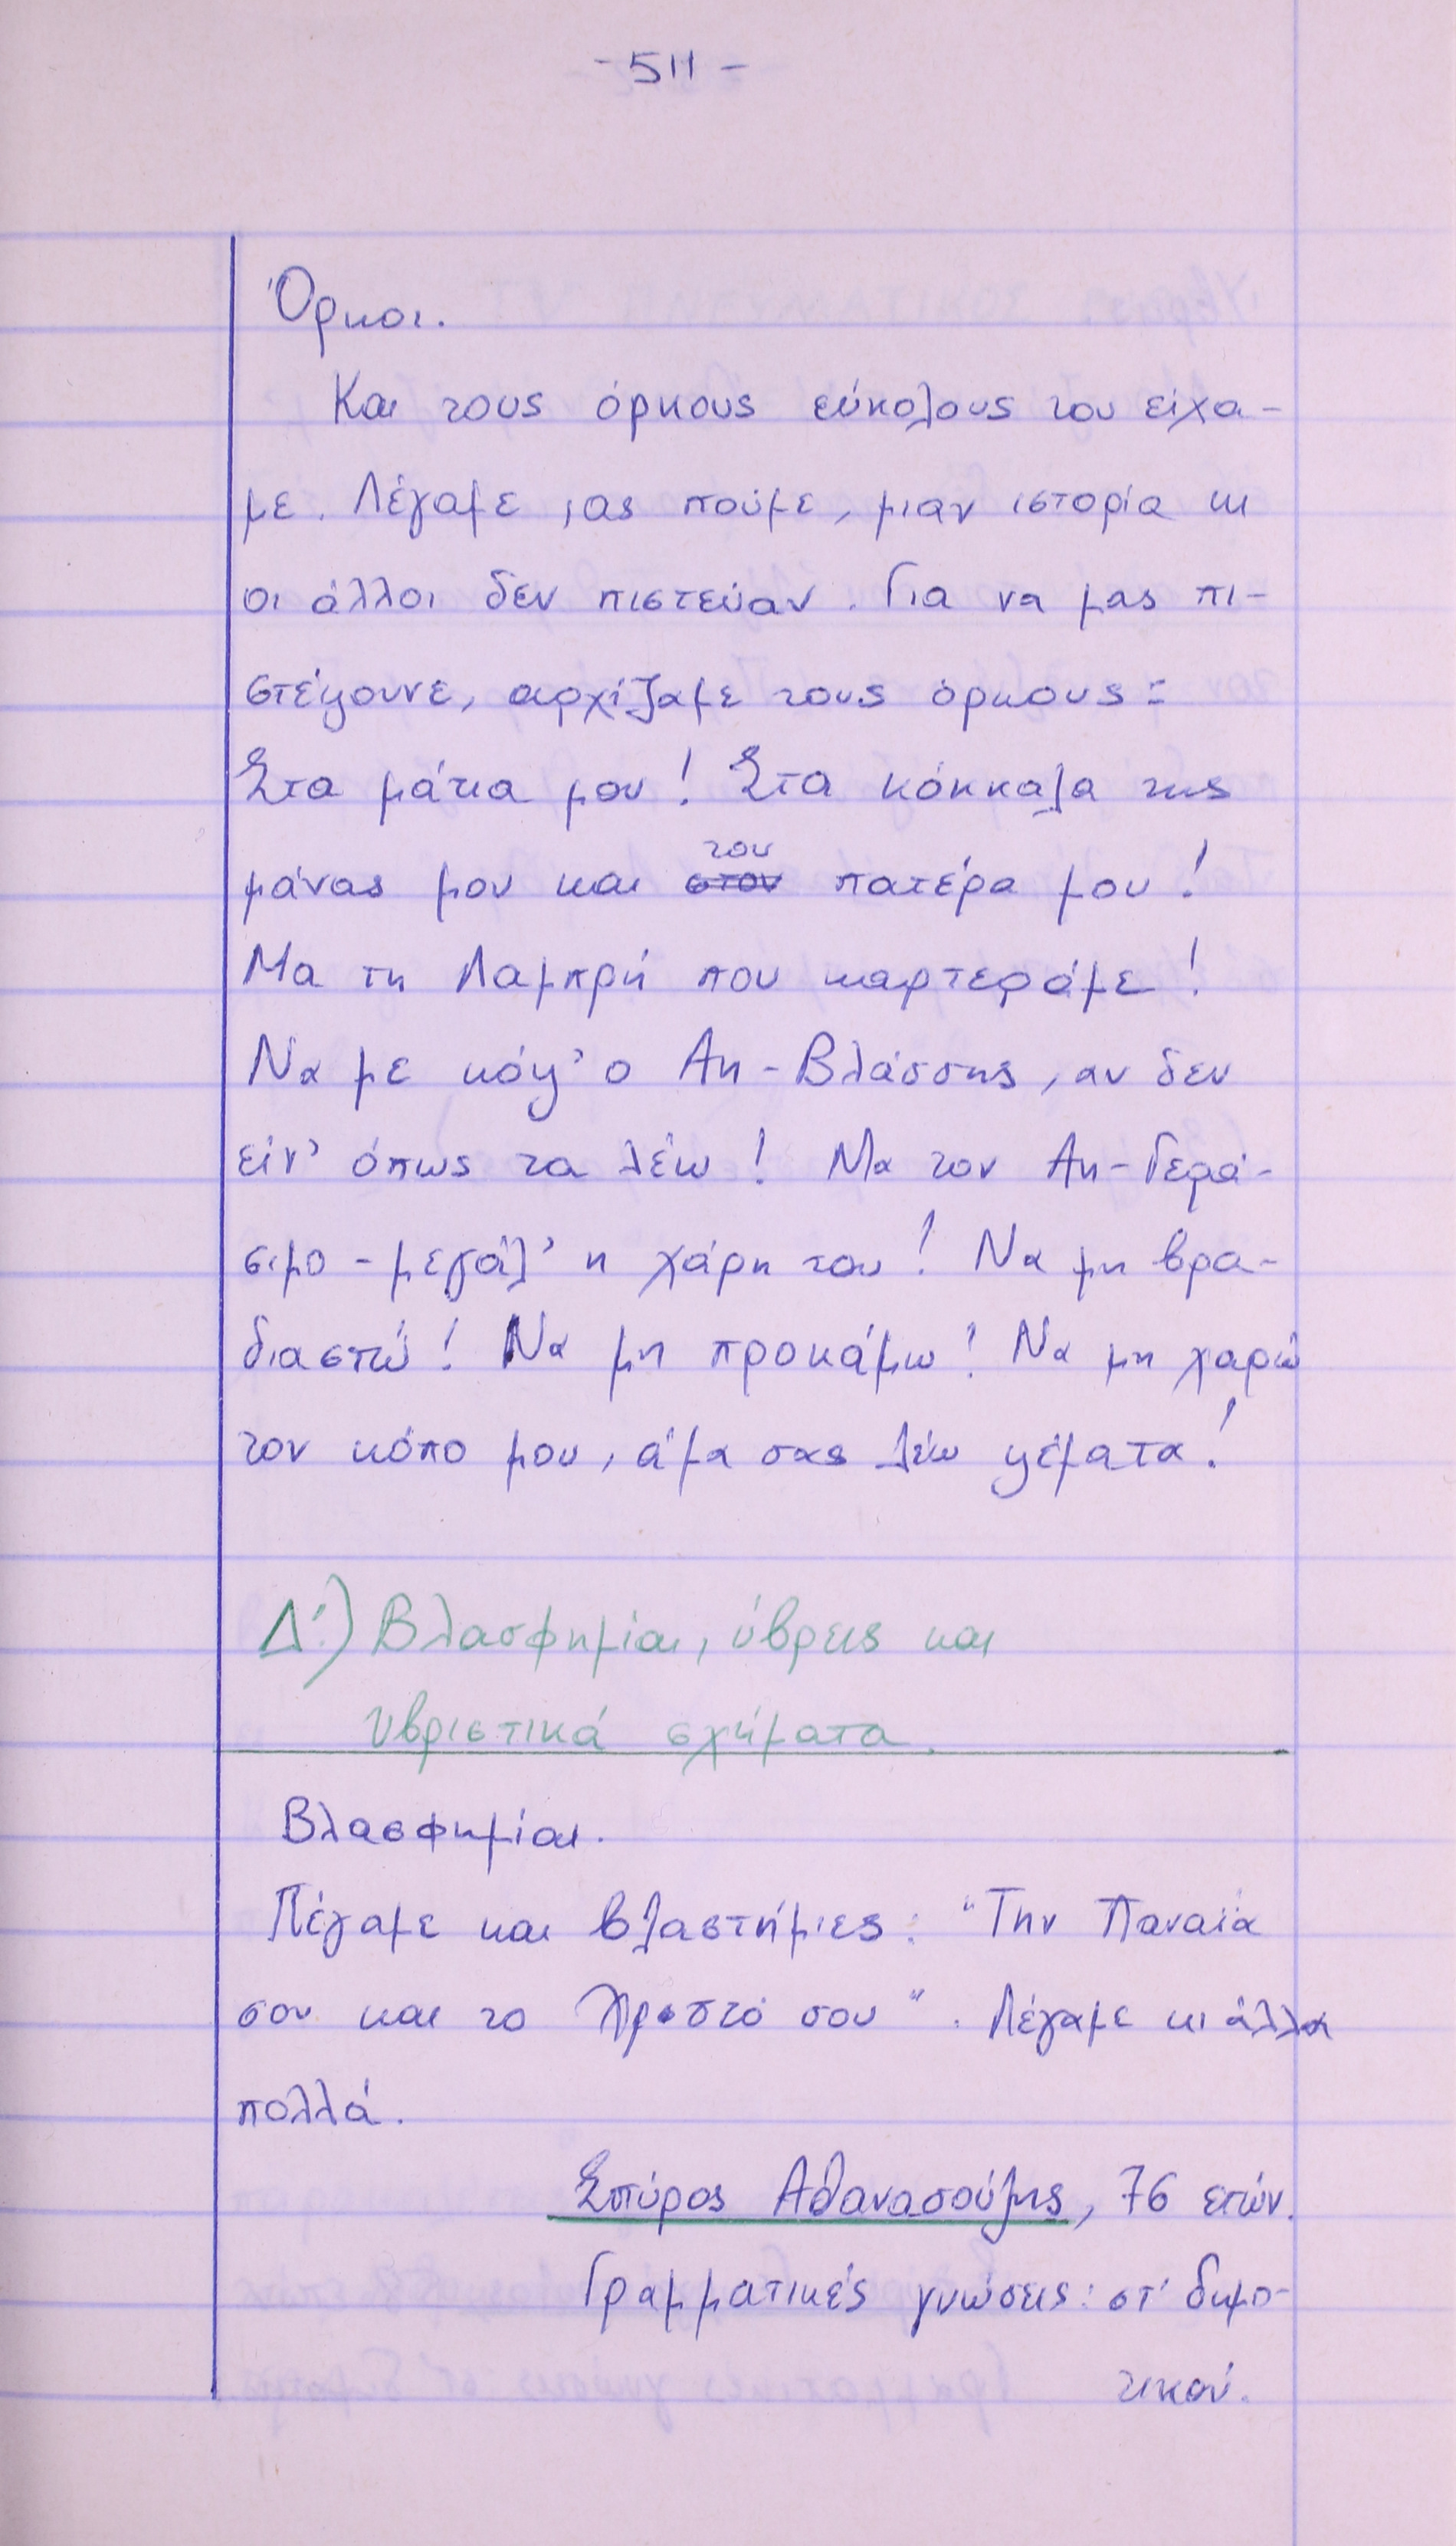 - 511 -
Όρκοι.
Και τους όρκους εύκολους του είχα-
με. Λέγαμε, ας πούμε, μιαν ιστορία κι
οι άλλοι δεν πιστεύαν. Για να μας πι-
στέψουνε, αρχίζαμε τους όρκους:
Στα μάτια μου! Στα κόκκαλα της
μάνας μου και του πατέρα μου!
Μα τη Λαμπρή που καρτεράμε!
Να με κόψ' ο Αη-Βλάσσης, αν δεν
είν' όπως τα λέω! Μα τον Αη-Γερά-
σιμο - μεγάλ' η χάρη του! Να μη βρα-
διαστώ! Να μη προκάμω! Να μη χαρώ
τον κόπο μου, άμα σας λέω ψέματα!
Δ'.) Βλασφημίαι, ύβρεις και
υβριστικά σχήματα.
Βλασφημίαι.
Λέγαμε και βλαστήμιες: "Την Παναΐα
σου και το Χριστό σου". Λέγαμε κι άλλα
πολλά.
Σπύρος Αθανασούλης, 76 ετών.
Γραμματικές γνώσεις: στ' δημο-
τικού.